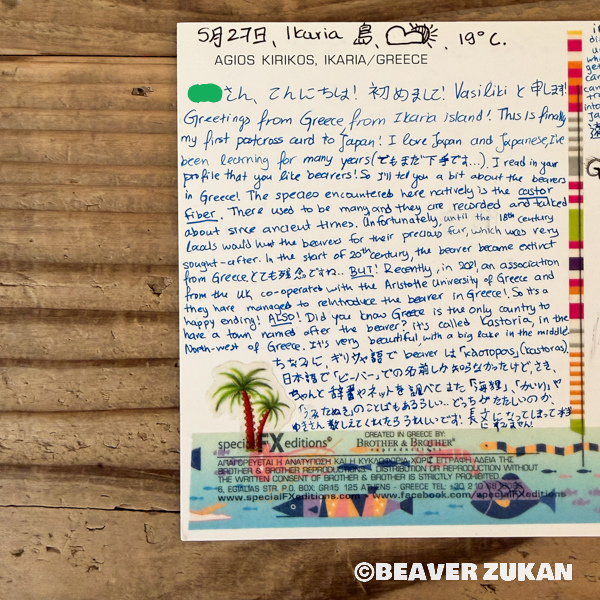 5月27日、Ikaria 島、 19°C.
AGIOS KIRIKOS, IKARIA/GREECE
さん、こんにちは! 初めまして! Vasiliki と申します!
Greetings from Greece, from Ikaria island! This is finally
my first postcross card to Japan! I love Japan and Japanese, I've
been learning for many years (でもまだ下手です...). I read in your
profile that you like beavers! So I'll tell you a bit about the beavers
in Greece! The species encountered here natively is the castor
fiber. There used to be many and they are recorded and talked
about since ancient times. Unfortunately, until the 18th century
locals would hunt the beavers for their precious fur, which was very
sought-after. In the start of 20th century, the beaver became extinct
from Greece. とても残念ですね.. BUT! Recently, in 2021, an association
from the UK, co-operated with the Aristotle University of Greece and
they have managed to reintroduce the beaver in Greece! So it's a
happy ending! ALSO! Did you know Greece is the only country to
have a town named after the beaver? it's called Kastoria, in the
North-west of Greece. It's very beautiful with a big lake in the middle
ちなみに、ギリシャ語で beaver は「κάστορας」(kastoras).
日本語で「ビーバー」での名前しか知らなかったけど、さき、
ちゃんと辞書やネットを調べてまた「海狸」、「かいり」や
「うみたぬき」のことばもあるらしい.. どっちがただしいのか、
さん教えてくれたらうれしいです! 長文になってしまって
すみません!
specialFXeditions®
CREATED IN GREECE BY:
BROTHER & BROTHER®
ΑΠΑΓΟΡΕΥΕΤΑΙ Η ΑΝΑΤΥΠΩΣΗ ΚΑΙ Η ΚΥΚΛΟΦΟΡΙΑ ΧΩΡΙΣ ΕΓΓΡΑΦΗ ΑΔΕΙΑ ΤΗΣ
BROTHER & BROTHER REPRODUCTIONS - DISTRIBUTION OR REPRODUCTION WITHOUT
THE WRITTEN CONSENT OF BROTHER & BROTHER IS STRICTLY PROHIBITED
6, EGIALIAS STR. P.O. BOX: GR15 125 ATHENS - GREECE TEL: +30 210
www.specialFXeditions.com www.facebook.com/specialFXeditions
©BEAVER ZUKAN